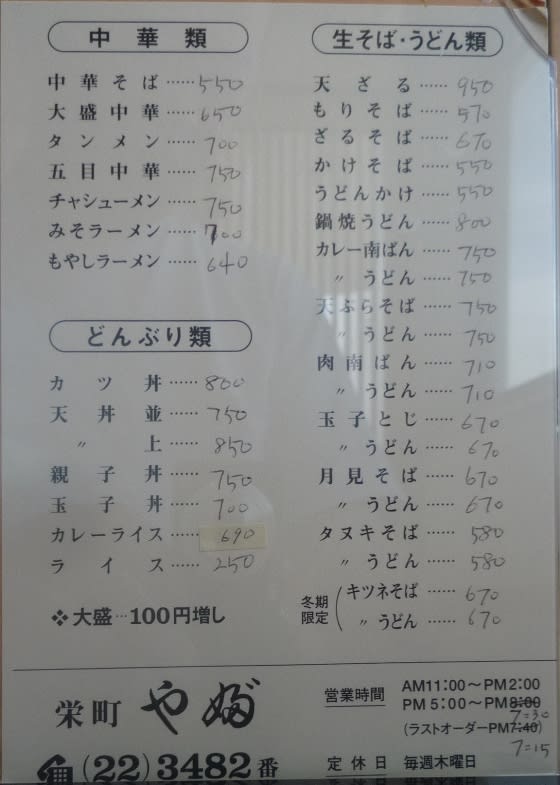 中華類
中華そば……550
大盛中華……650
タンメン……700
五目中華……750
チャシューメン……750
みそラーメン……700
もやしラーメン……640
どんぶり類
カツ丼……800
天丼並……750
〃 上……850
親子丼……750
玉子丼……700
カレーライス……690
ライス……250
❖大盛…100円増し
生そば・うどん類
天ざる……950
もりそば……570
ざるそば……670
かけそば……550
うどんかけ……550
鍋焼うどん……800
カレー南ばん……750
〃 うどん……750
天ぷらそば……750
〃 うどん……750
肉南ばん……710
〃 うどん……710
玉子とじ……670
〃 うどん……670
月見そば……670
〃 うどん……670
タヌキそば……580
〃 うどん……580
冬期限定
キツネそば……670
〃 うどん……670
栄町 やぶ
(22)3482番
営業時間 AM11:00〜PM2:00
PM5:00〜PM8:00
7:30
(ラストオーダーPM7:40)
7:15
定休日 毎週木曜日